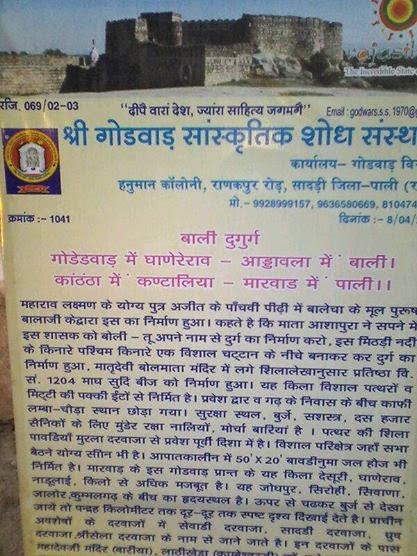 rajasth
The Incredible State
रजि. 069/02-03
“दीपै वारां देश, ज्यारा साहित्य जगमगै”
Email : godwars.s.s. 1970@g
श्री गोडवाड़ सांस्कृतिक शोध संस्थ
कार्यालय– गोडवाड़ वि
हनुमान कॉलोनी, राणकपुर रोड़, सादड़ी जिला–पाली (र
मो.– 9928999157, 9636580669, 810474
क्रमांक :– 1041
दिनांक :– 8/04/
बाली दुगुर्ग
गोडेडवाड़ में घाणेरेराव – आड्डावला में बाली।
कांठंठा में कण्टालिया – मारवाड में पाली।।
महाराव लक्ष्मण के योग्य पुत्र अजीत के पाँचवी पीढ़ी में बालेचा के मूल पुरूष
बालाजी केद्वारा इस का निर्माण हुआ। कहते है कि माता आशापुरा ने सपने में
इस शासक को बोली – तू अपने नाम से दुर्ग का निर्माण करो , इस मिठड़ी नदी
के किनारे पश्चिम किनारे एक विशाल चट्टान के नीचे बनाकर कर दुर्ग का
निर्माण हुआ. मातृदेवी बोलमाता मंदिर में लगे शिलालेखानुसार प्रतिष्ठा वि.
सं. 1204 माघ सुदि बीज को निर्माण हुआ। यह किला विशाल पत्थरों व
मिट्टी की पक्की ईंटों से निर्मित है। प्रवेश द्वार व गढ़ के निवास के बीच काफी
लम्बा–चौड़ा स्थान छोड़ा गया। सुरक्षा स्थल, बुर्ज, सशस्त्र, दस हजार
सैनिकों के लिए मुंडेर रक्षा नालियां, मोर्चा बारियां है । पत्थर की शिला
पावडियाँ मुरला दरवाजा से प्रवेश पूर्वी दिशा में है। विशाल परिक्षेत्र जहाँ सभा
बैठने योग्य सौीन भी है। आपातकालीन में 50' X 20' बावडीनुमा जल हौज भी
निर्मित है। मारवाड के इस गोडवाड़ प्रान्त के यह किला देसूरी, घाणेराव,
नाडूलाई, किलो से अधिक मजबूत है। यह जोधपुर, सिरोही, सिवाणा,
जालोर,कुम्भलगढ़ के बीच का हृदयस्थल है। ऊपर से चढकर बुर्ज से देखा
जाये तो पन्द्रह किलोमीटर तक दूर–दूर तक स्पष्ट दृश्य दिखाई देते है। प्राचीन
अवशेषों के दरवाजों में सेवाडी दरवाजा, सादडी दरवाजा, ध्रुव
दरवाजा,श्रीसेला दरवाजा के नाम से जाने जाते है। इन दरवाजों के पास
महादेवजी मंदिर (बारीया), लाठीखेडा